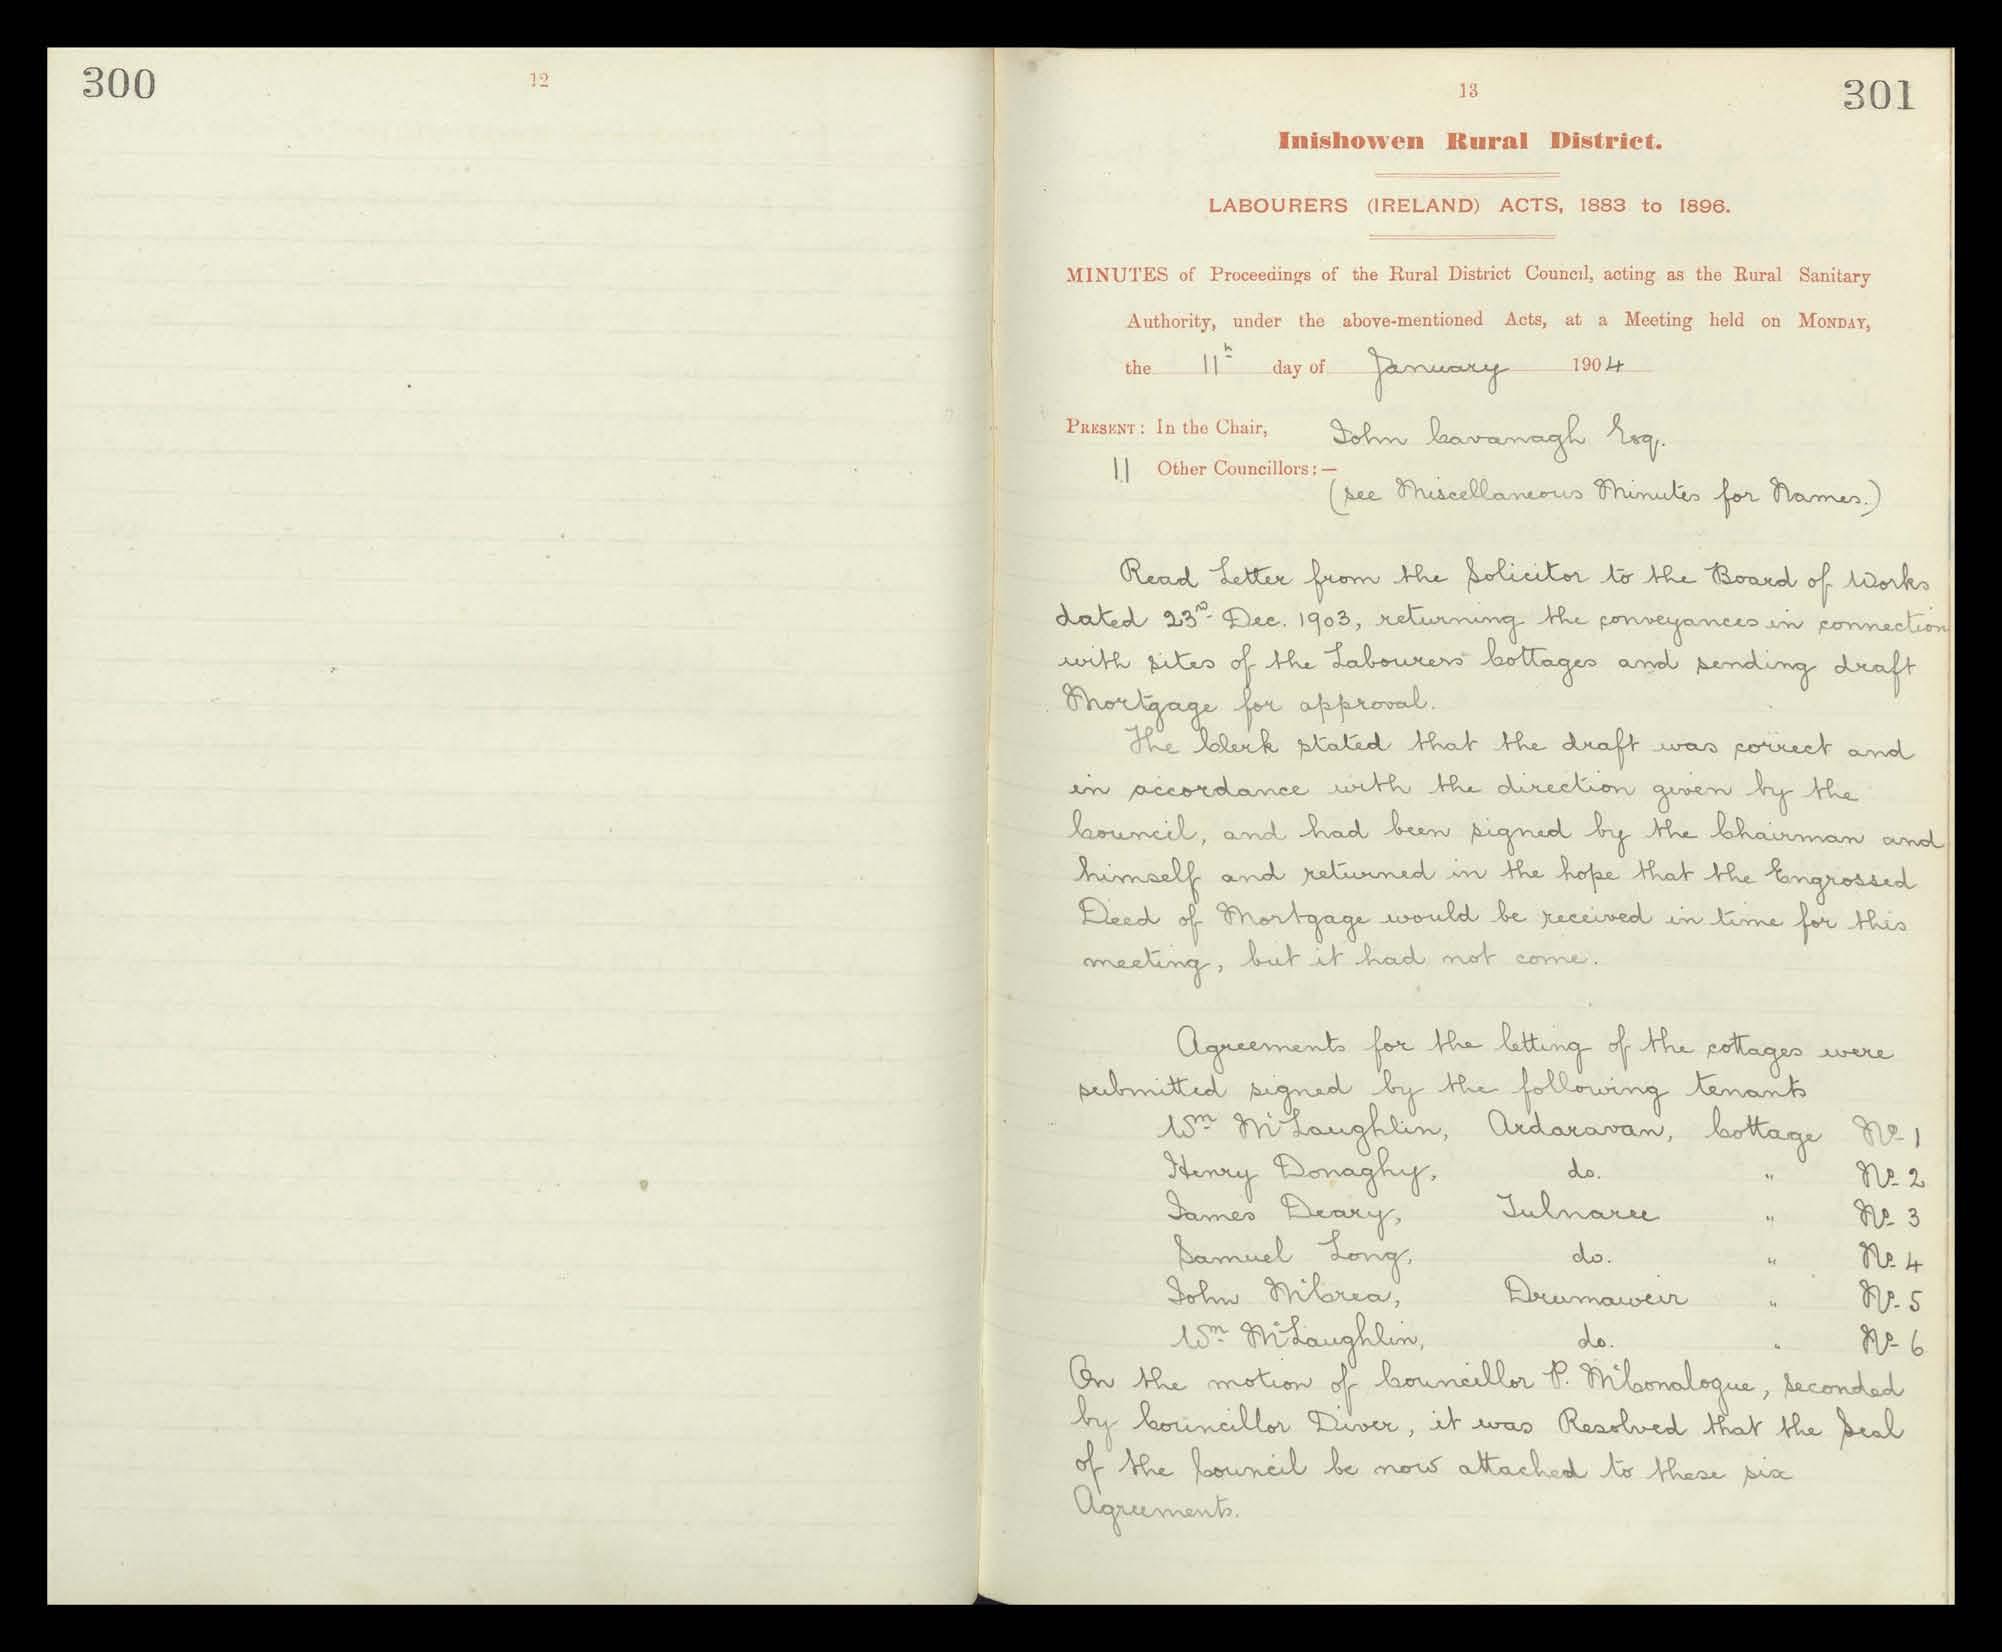 300
12
13
301
Inishowen Rural District.
LABOURERS (IRELAND) ACTS, 1883 to 1896.
MINUTES of Proceedings of the Rural District Council, acting as the Rural Sanitary
Authority, under the above-mentioned Acts, at a Meeting held on MONDAY,
the 11th day of January 1904
PRESENT: In the Chair, John Cavanagh Esq.
11 Other Councillors:—
(see Miscellaneous Minutes for Names.)
Read Letter from the Solicitor to the Board of Works
dated 23rd Dec. 1903, returning the conveyances in connection
with sites of the Labourers Cottages and sending draft
Mortgage for approval.
The Clerk stated that the draft was correct and
in accordance with the direction given by the
Council, and had been signed by the Chairman and
himself and returned in the hope that the Engrossed
Deed of Mortgage would be received in time for this
meeting, but it had not come.
Agreements for the letting of the cottages were
submitted signed by the following tenants
Wm McLaughlin, Ardaravan, Cottage No 1
Henry Donaghy, do. " No 2
James Deary, Tulnaree " No 3
Samuel Long, do. " No 4
John McCrea, Drumaweir " No 5
Wm McLaughlin, do. " No 6
On the motion of Councillor P. McConalogue, seconded
by Councillor Diver, it was Resolved that the Seal
of the Council be now attached to these six
Agreements.